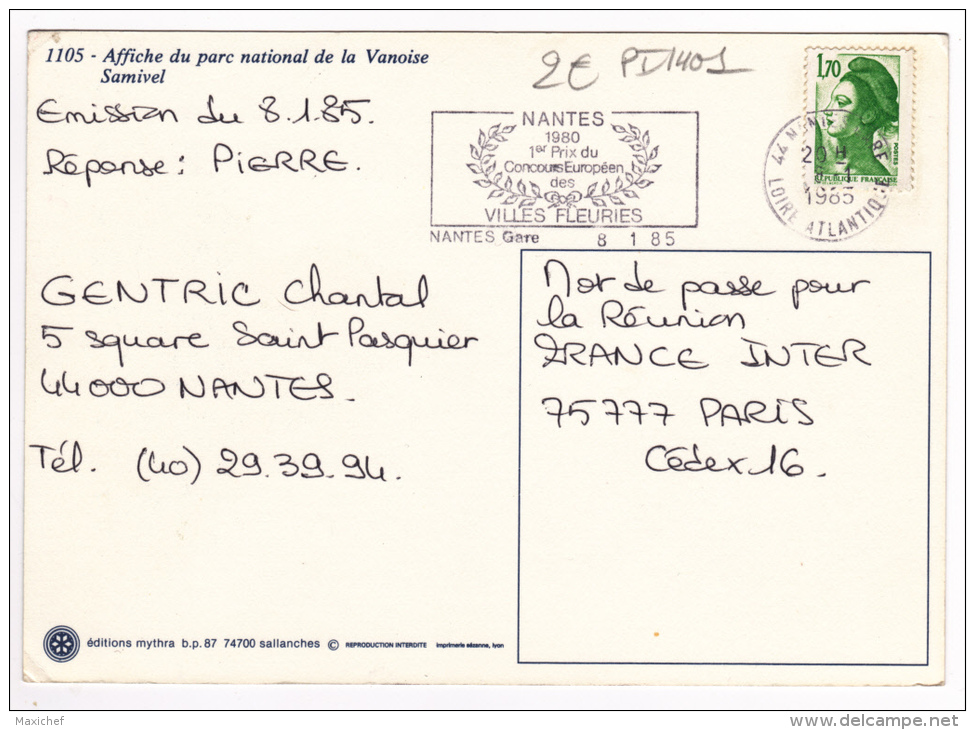 1105 - Affiche du parc national de la Vanoise
Samivel
2€ PI1401
Emission du 8.1.85.
Réponse : PiERRE.
NANTES
1980
1er Prix du
Concours Européen
des
VILLES FLEURIES
NANTES Gare 8 1 85
1,70
POSTES
REPUBLIQUE FRANÇAISE
44 NAN RE
20 H
8-1
1985
LOIRE ATLANTIQUE
GENTRIC Chantal
5 square Saint Pasquier
44000 NANTES.
Tél. (40) 29.39.94.
Mot de passe pour
la Réunion
FRANCE INTER
75777 PARiS
Cédex 16.
éditions mythra b.p. 87 74700 sallanches © REPRODUCTION INTERDITE imprimerie sézanne, lyon
Maxichef
www.delcampe.net